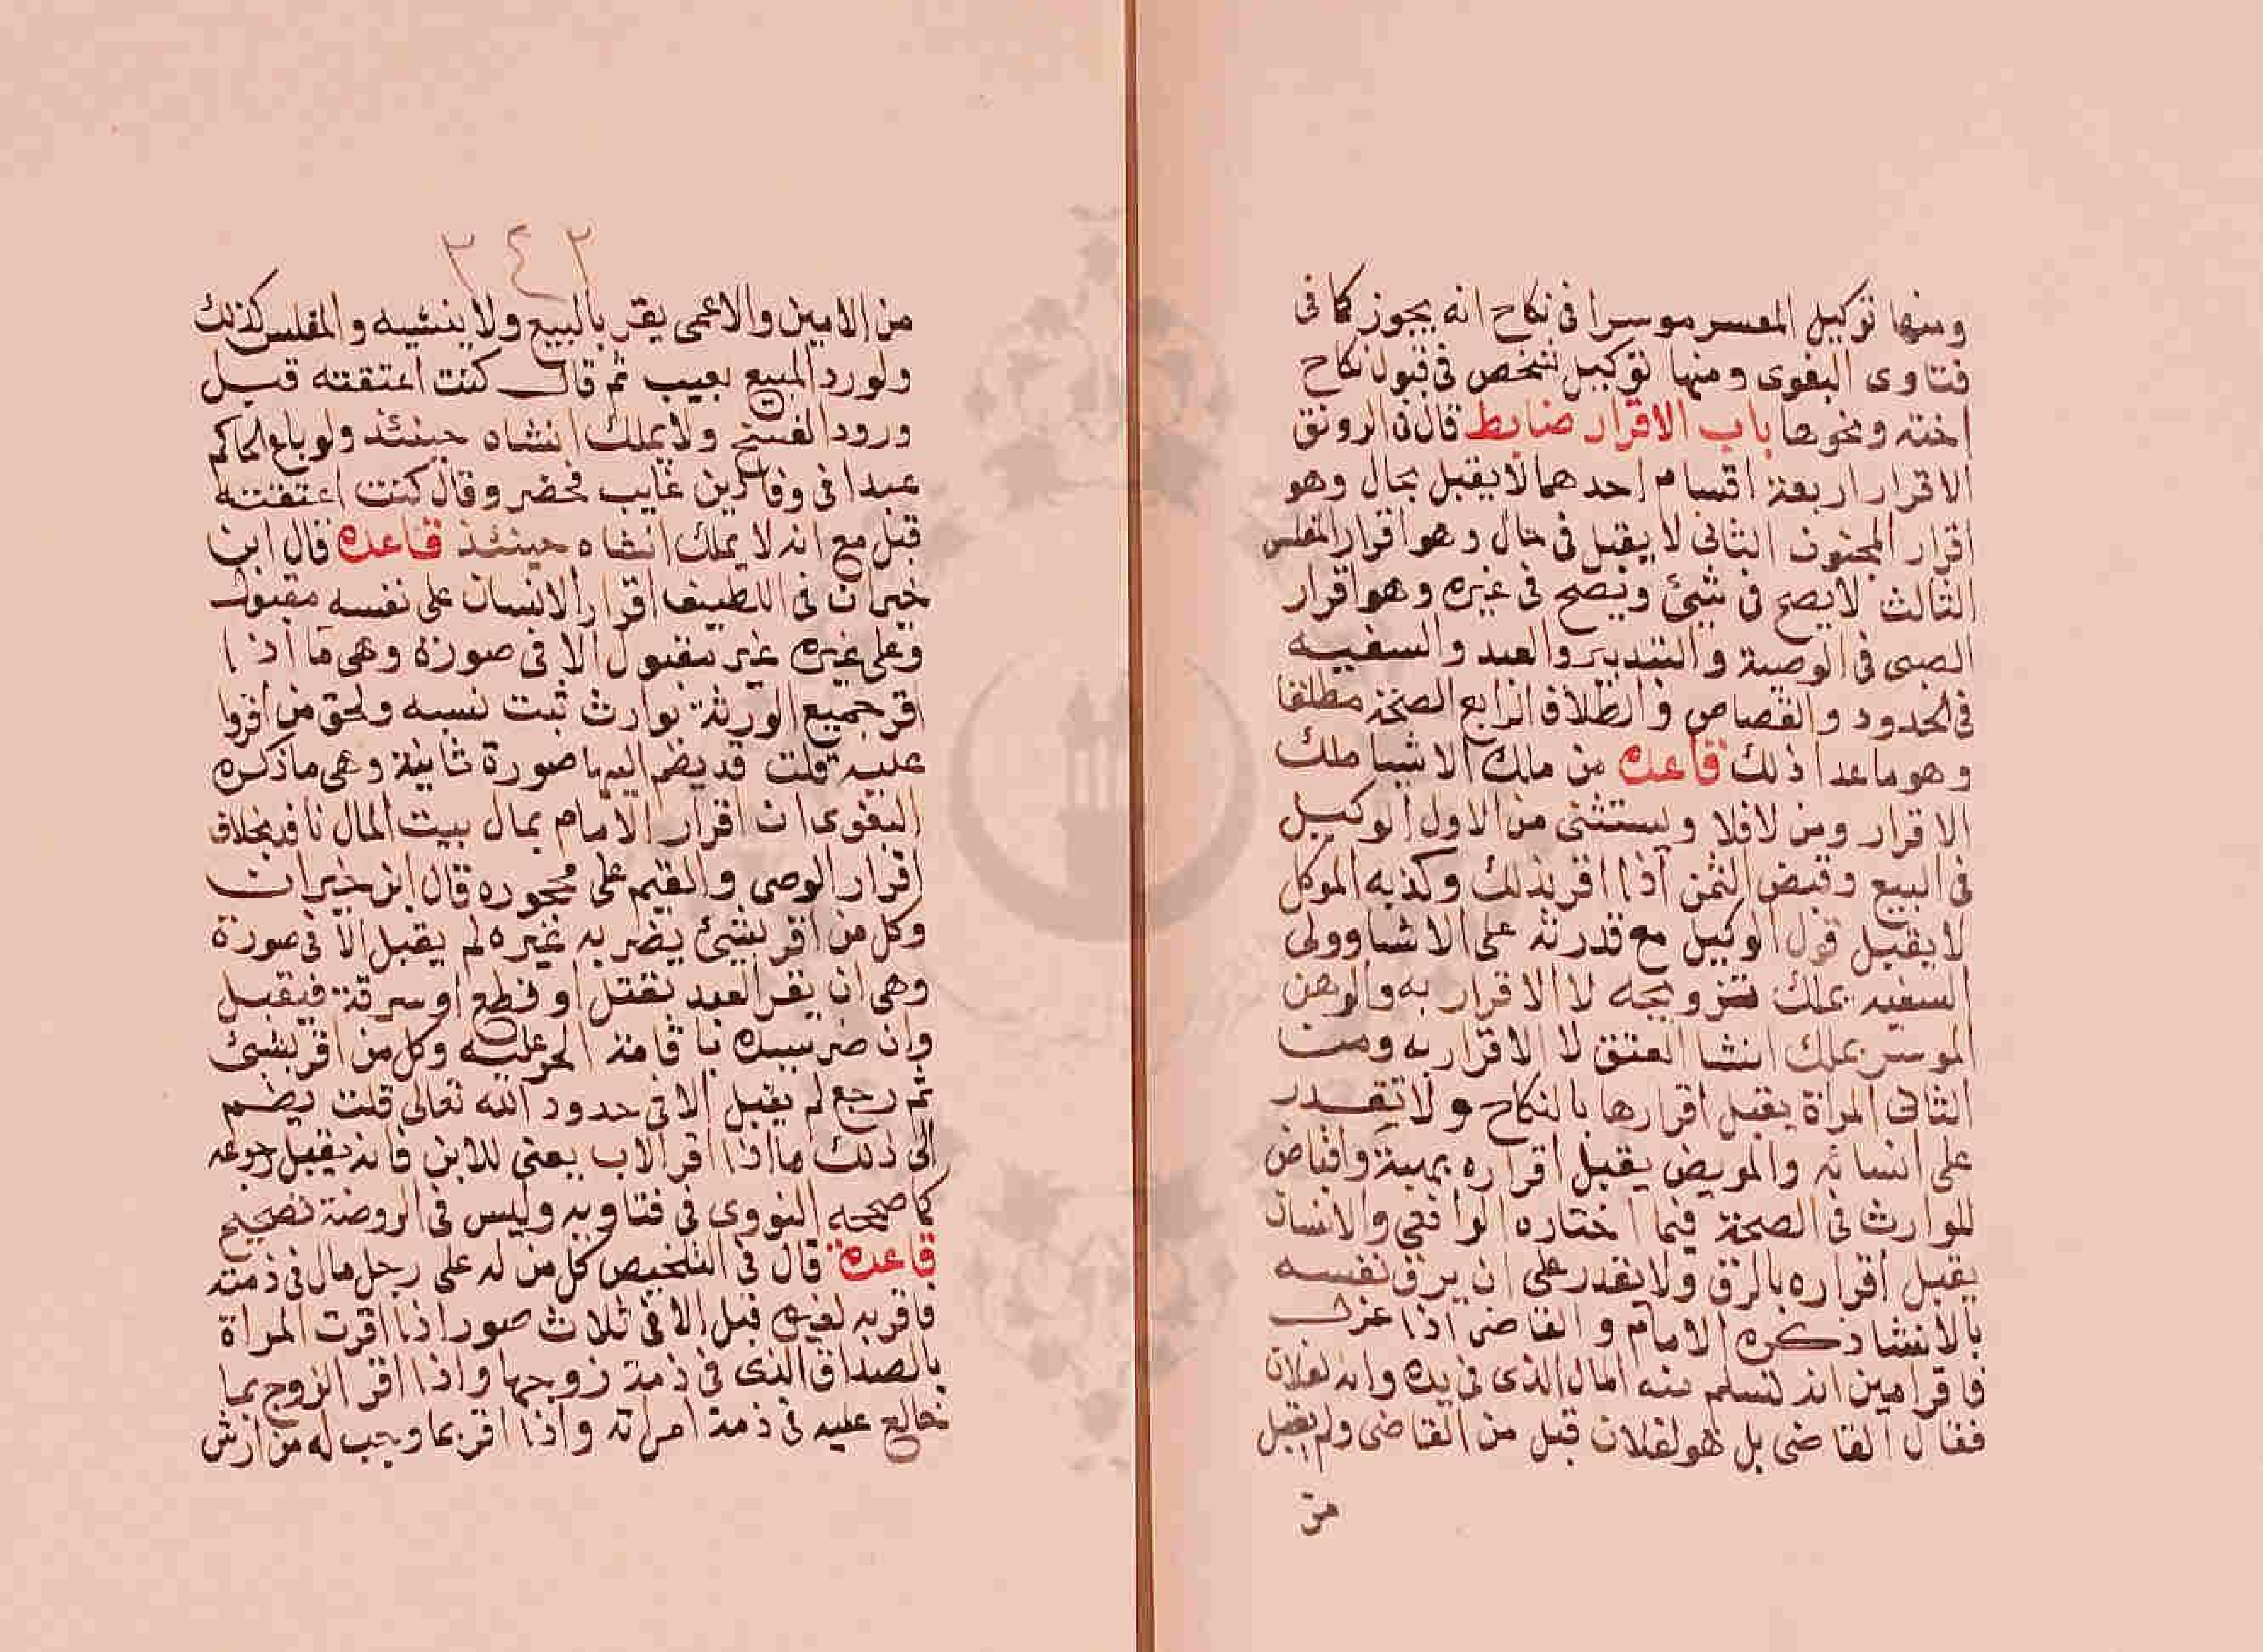 ومنها توكيل المعسر موسرا في نكاح انه يجوز كما في
فتاوى البغوى ومنها توكيل شخص في قبول نكاح
اخته ونحوها باب الاقرار ضابط قال في الرونق
الاقرار اربعة اقسام احدهما لا يقبل بحال وهو
اقرار المجنون الثاني لا يقبل في حال وهو اقرار المفلس
الثالث لا يصح في شيئ ويصح في غيره وهو اقرار
الصبى في الوصية والتدبير والعبد والسفيه
في الحدود والقصاص والطلاق الرابع الصحة مطلقا
وهو ماعدا ذلك قاعدة من ملك الانشا ملك
الاقرار ومن لا فلا ويستثنى من الاول الوكيل
في البيع وقبض الثمن اذا اقر بذلك وكذبه الموكل
لا يقبل قول الوكيل مع قدرته على الانشا وولى
السفيه يملك تزويجه لا الاقرار به والرهن
الموسر يملك انشا العتق لا الاقرار به ومن
الثاني المراة يقبل اقرارها بالنكاح ولا تقدر
على انشائه والمريض يقبل اقراره بهبة واقباض
للوارث في الصحة فيما اختاره الرافعى والانسان
يقبل اقراره بالرق ولا يقدر على ان يرق نفسه
بالانشا ذكره الامام والقاضى اذا عزل
فاقر امين انه تسلم منه المال الذى في يده وانه لفلان
فقال القاضى بل هو لفلان قبل من القاضى ولم يقبل
من
٢٤٢
من الامين والاعمى يقر بالبيع ولا ينشيه والمفلس كذلك
ولو رد المبيع بعيب ثم قال كنت اعتقته قبل
ورود الفسخ ولا يملك انشاه حينئذ ولو باع الحاكم
عبدا في وفا دين غايب فحضر وقال كنت اعتقته
قبل مع انه لا يملك انشاه حينئذ قاعدة قال ابن
خيران في اللطيف اقرار الانسان على نفسه مقبول
وعلى غيره غير مقبول الا في صورة وهى ما اذا
اقر جميع الورثة بوارث ثبت نسبه ولحق من اقروا
عليه قلت قد يضم اليها صورة ثانية وهى ما ذكره
البغوى ان اقرار الامام بمال بيت المال نافد بخلاف
اقرار الوصى والقيم على محجوره قال ابن خيران
وكل من اقر بشيئ يضر به غيره لم يقبل الا في صورة
وهى ان يقر العبد بقتل او قطع او سرقة فيقبل
وان ضر سيده باقامة الحد عليه وكل من اقر بشيئ
ثم رجع لم يقبل الا في حدود الله تعالى قلت يضم
الى ذلك ما اذا اقر الاب بعنى للابن فانه يقبل رجوعه
كما صححه النووى في فتاويه وليس في الروضة تصحيح
قاعدة قال في التلخيص كل من له على رجل مال في ذمته
فاقر به لغيره قبل الا في ثلاث صور اذا اقرت المراة
بالصداق الذى في ذمة زوجها واذا اقر الزوج بما
خالع عليه في ذمة امراته واذا اقر بما وجب له من ارش